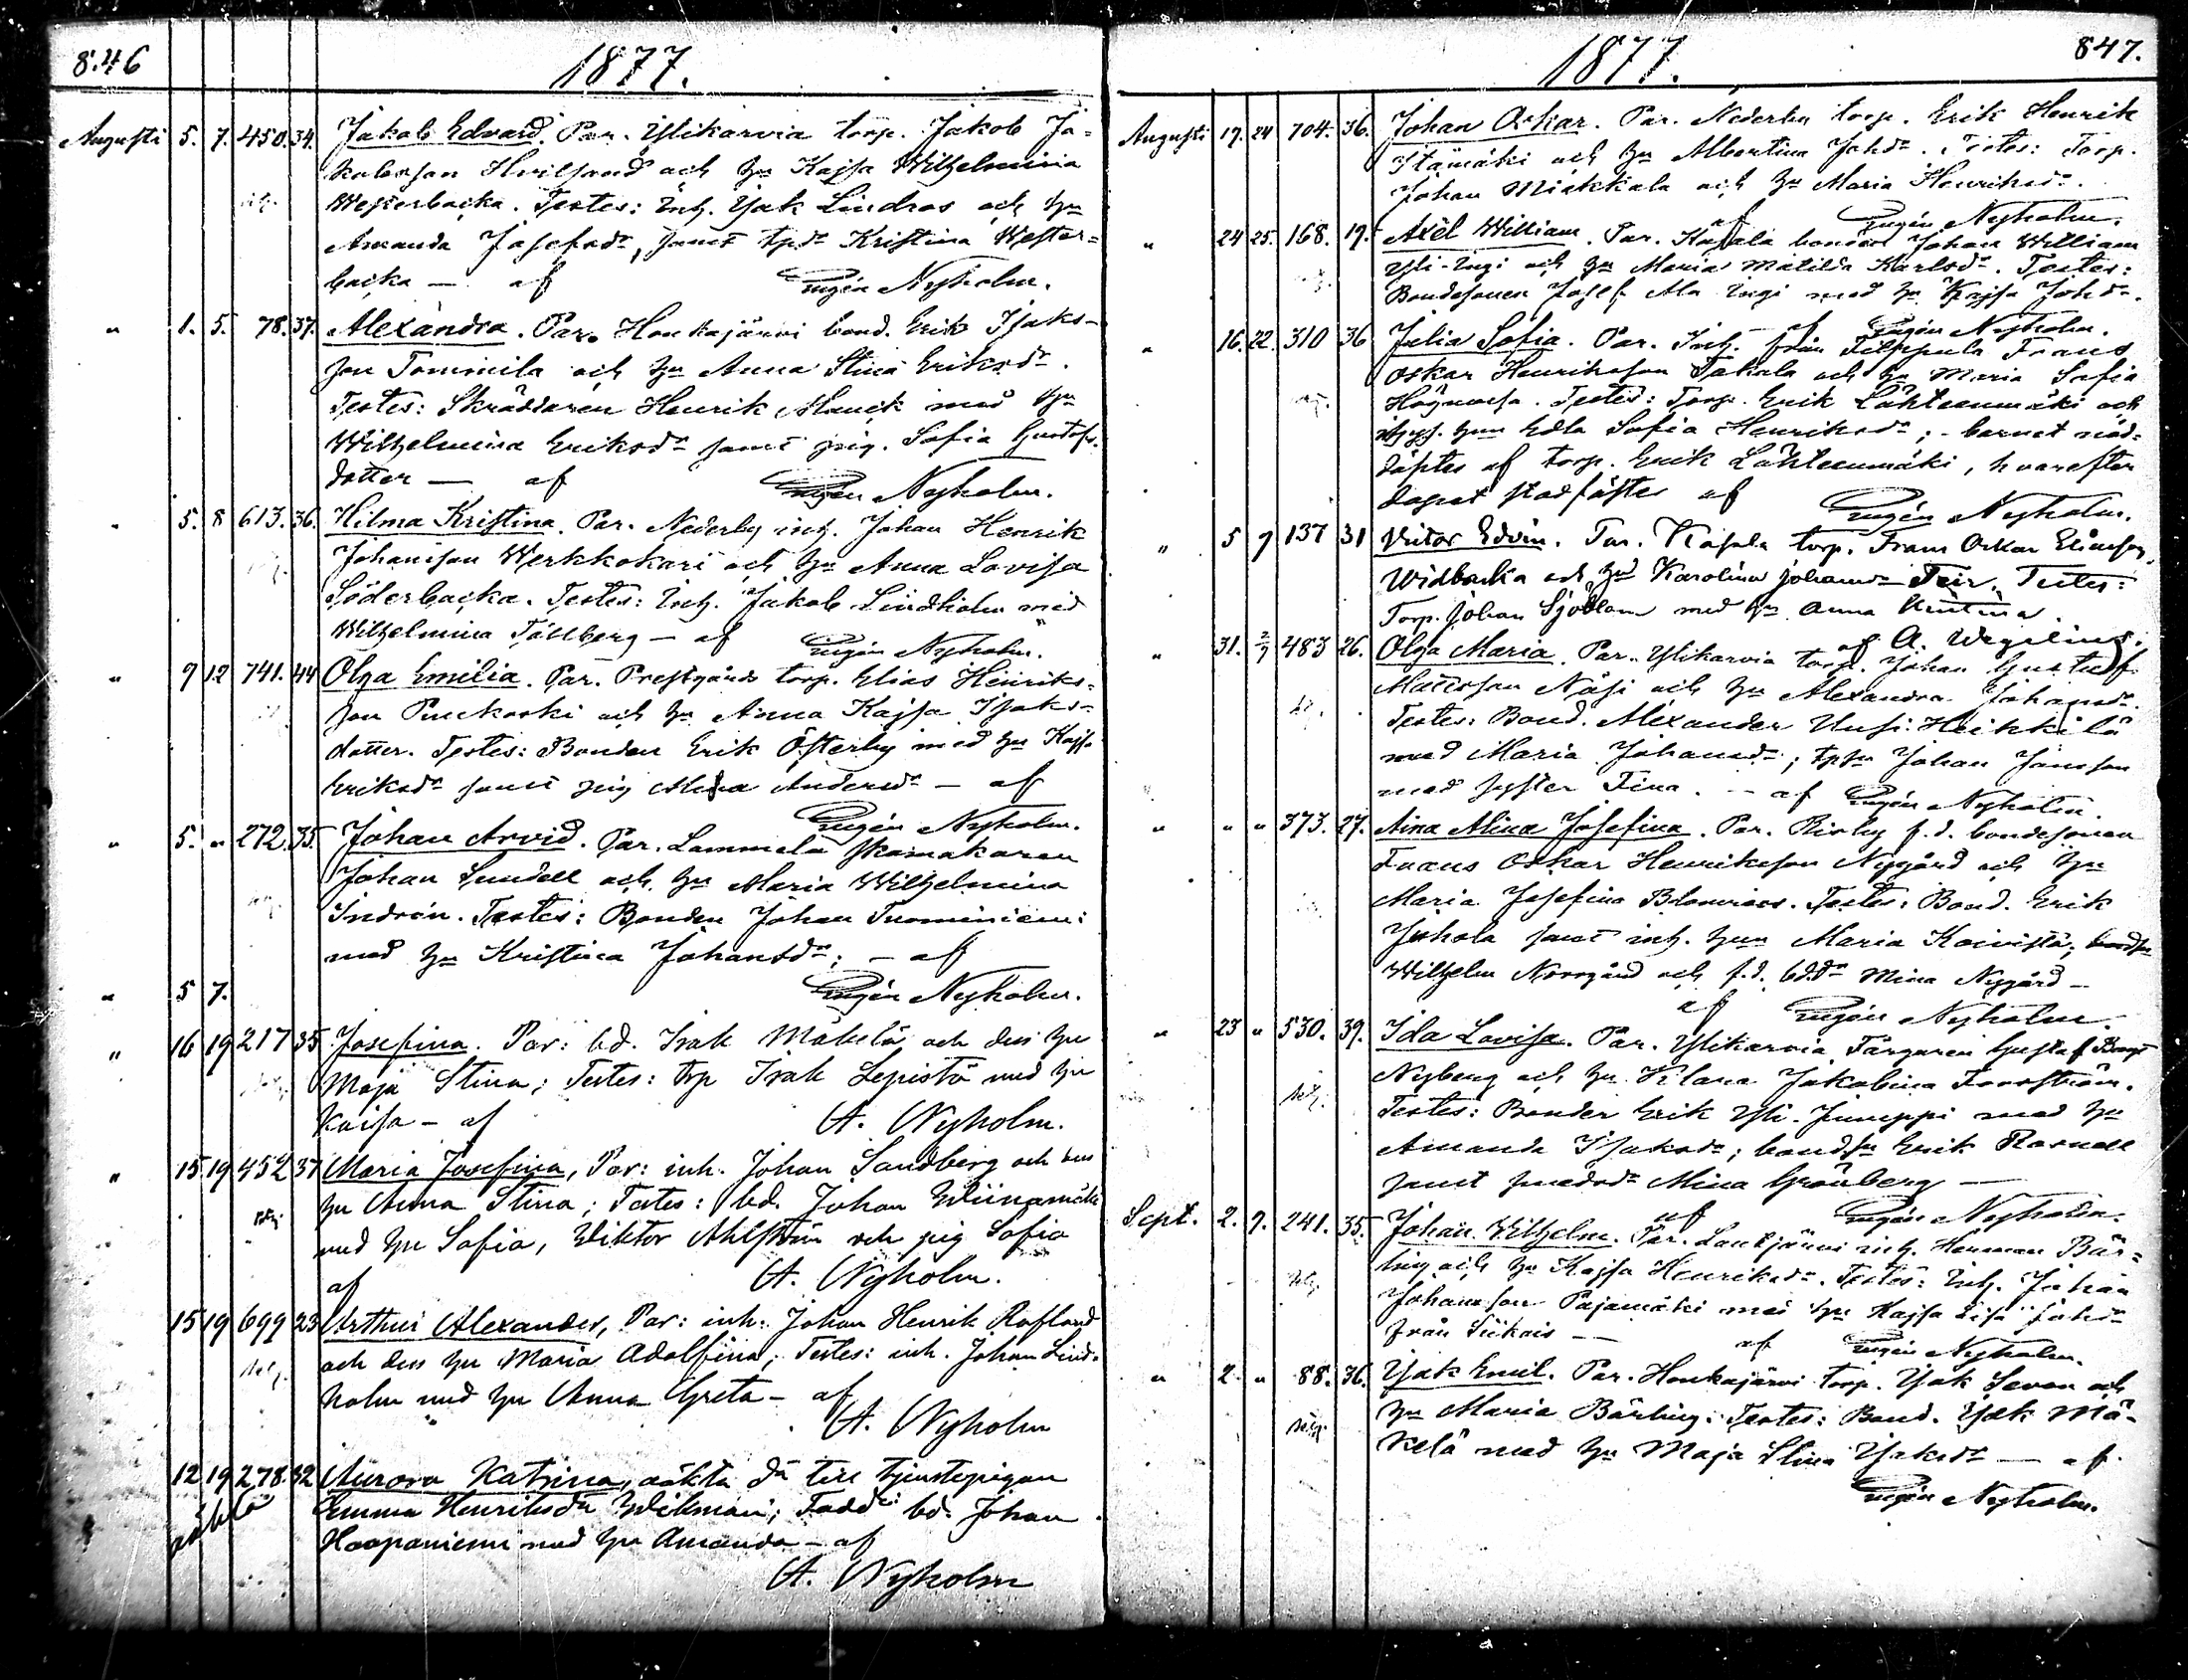 846
1877.
Augusti 5. 7. 450. 34. Jakob Edvard. Par. Ylikarvia torp. Jakob Ja-
kobsson Hvilsand och hu Kajsa Wilhelmina
Westerbacka. Testes: Inh. Isak Lindros och hu
Amanda Josefsdr, samt tpdr Kristina Wester=
backa — af Eugén Nyholm.
" 1. 5. 78. 37. Alexandra. Par. Honkajärvi bond. Erik Isaks-
son Tommila och hu Anna Stina Eriksdr.
Testes: Skräddaren Henrik med hu
Wilhelmina Eriksdr samt pig. Sofia Gustafs-
dotter — af Eugén Nyholm.
" 5. 8 613. 36. Hilma Kristina. Par. Nederby inh. Johan Henrik
Johansson Werkkokari och hu Anna Lovisa
Söderbacka. Testes: Inh. Jakob Lindholm med
Wilhelmina Tållberg — af Eugén Nyholm.
" 9 12 741. 44 Olga Emilia. Par. Prestgårds torp. Elias Henriks=
son Puckoski och hu Anna Kajsa Isaks=
dotter. Testes: Bonden Erik Österby med hu Kajsa
Eriksdr samt pig Andersdr — af
Eugén Nyholm.
" 5. " 272. 35. Johan Arvid. Par. Lammela skomakaren
Johan Sundell och hu Maria Wilhelmina
Indrén. Testes: Bonden Johan Tuominiemi
med hu Kristina Johansdr; — af
" 5 7. Eugén Nyholm.
" 16 19 217 35 Josefina. Par: bd. Isak Mäkelä och dess hu
Maja Stina; Testes: trp Isak Lepistö med hu
Kaisa — af A. Nyholm.
" 15 19 452 37 Maria Josefina, Par: inh. Johan Sandberg och dess
hu Anna Stina; Testes: bd. Johan Wiinamäki
med hu Sofia, Wiktor Ahlström och pig Sofia
af A. Nyholm.
15 19 699 23 Arthur Alexander, Par: inh: Johan Henrik Rosland
och dess hu Maria Adolfina; Testes: inh. Johan Lind-
holm med hu Anna Greta — af
A. Nyholm
12 19 278 32 Aurora Katrina, oäkta dr till tjenstepigan
oäkta Emma Henriksdr Wikman; Fadd: bd. Johan
Haapaniemi med hu Amanda — af
A. Nyholm
1877.
847.
Augusti 17. 24 704. 36. Johan Oskar. Par. Nederby torp. Erik Henrik
Itämäki och hu Albertina Johdr. Testes: Torp.
Johan Miekkala och hu Maria Henriksdr.
af Eugén Nyholm.
" 24 25. 168. 19. Axel William. Par. Kasala bonden Johan William
Yli-Ingi och hu Maria Matilda Karlsdr. Testes:
Bondesonen Josef Ala Ingi med hu Kajsa Johdr.
af Eugén Nyholm.
" 16. 22. 310 36 Julia Sofia. Par. Inh. från Filppula Frans
Oskar Henriksson Takala och hu Maria Sofia
. Testes: Torp. Erik Lähteenmäki och
hun Edla Sofia Henriksdr; - barnet nöd-
döptes af torp. Erik Lähteenmäki, hvarefter
dopet stadfästes af Eugén Nyholm.
" 5 7 137 31 Victor Edvin. Par. Kasala torp. Frans Oskar Eliasson
Widbacka och hu Karolina Johansdr . Testes:
Torp. Johan Sjöblom med hu Anna Kristina
af A. Wegelius.
" 31. 2/9 483 26. Olga Maria. Par. Ylikarvia torp. Johan Gustaf
Mattsson Näsi och hu Alexandra Johansdr.
Testes: Bond. Alexander Uusi-Heikkilä
med Maria Johansdr; tpsn Johan Jansson
med syster Fina. — af Eugén Nyholm.
" " " 373. 27. Aina Alina Josefina. Par. Riisby f.d. bondesonen
Frans Oskar Henriksson Nygård och hu
Maria Josefina Blomroos. Testes: Bond. Erik
Juhola samt inh. hun Maria Koivisto, bondsn
Wilhelm Norrgård och f.d. bd.dr Mina Nygård —
af Eugén Nyholm.
" 23 " 530. 39. Ida Lovisa. Par. Ylikarvia Färgaren Gustaf
Nyberg och hu Klara Jakobina Forsström.
Testes: Bonden Erik Yli-Juuppi med hu
Amanda Isaksdr; bondsn Erik Rosnell
samt smedsdr Mina Grönberg —
af Eugén Nyholm.
Sept. 2. 9. 241. 35. Johan Wilhelm. Par. Lankjärvi inh. Herman Bär=
ling och hu Kajsa Henriksdr. Testes: Inh. Johan
Johansson Pajamäki med hu Kajsa Lisa Johdr
från Siikais — af Eugén Nyholm.
" 2. " 88. 36. Isak Emil. Par. Honkajärvi torp. Isak Savon och
hu Maria Bärling. Testes: Bond. Isak Mä-
kelä med hu Maja Stina Isaksdr — af
Eugén Nyholm.